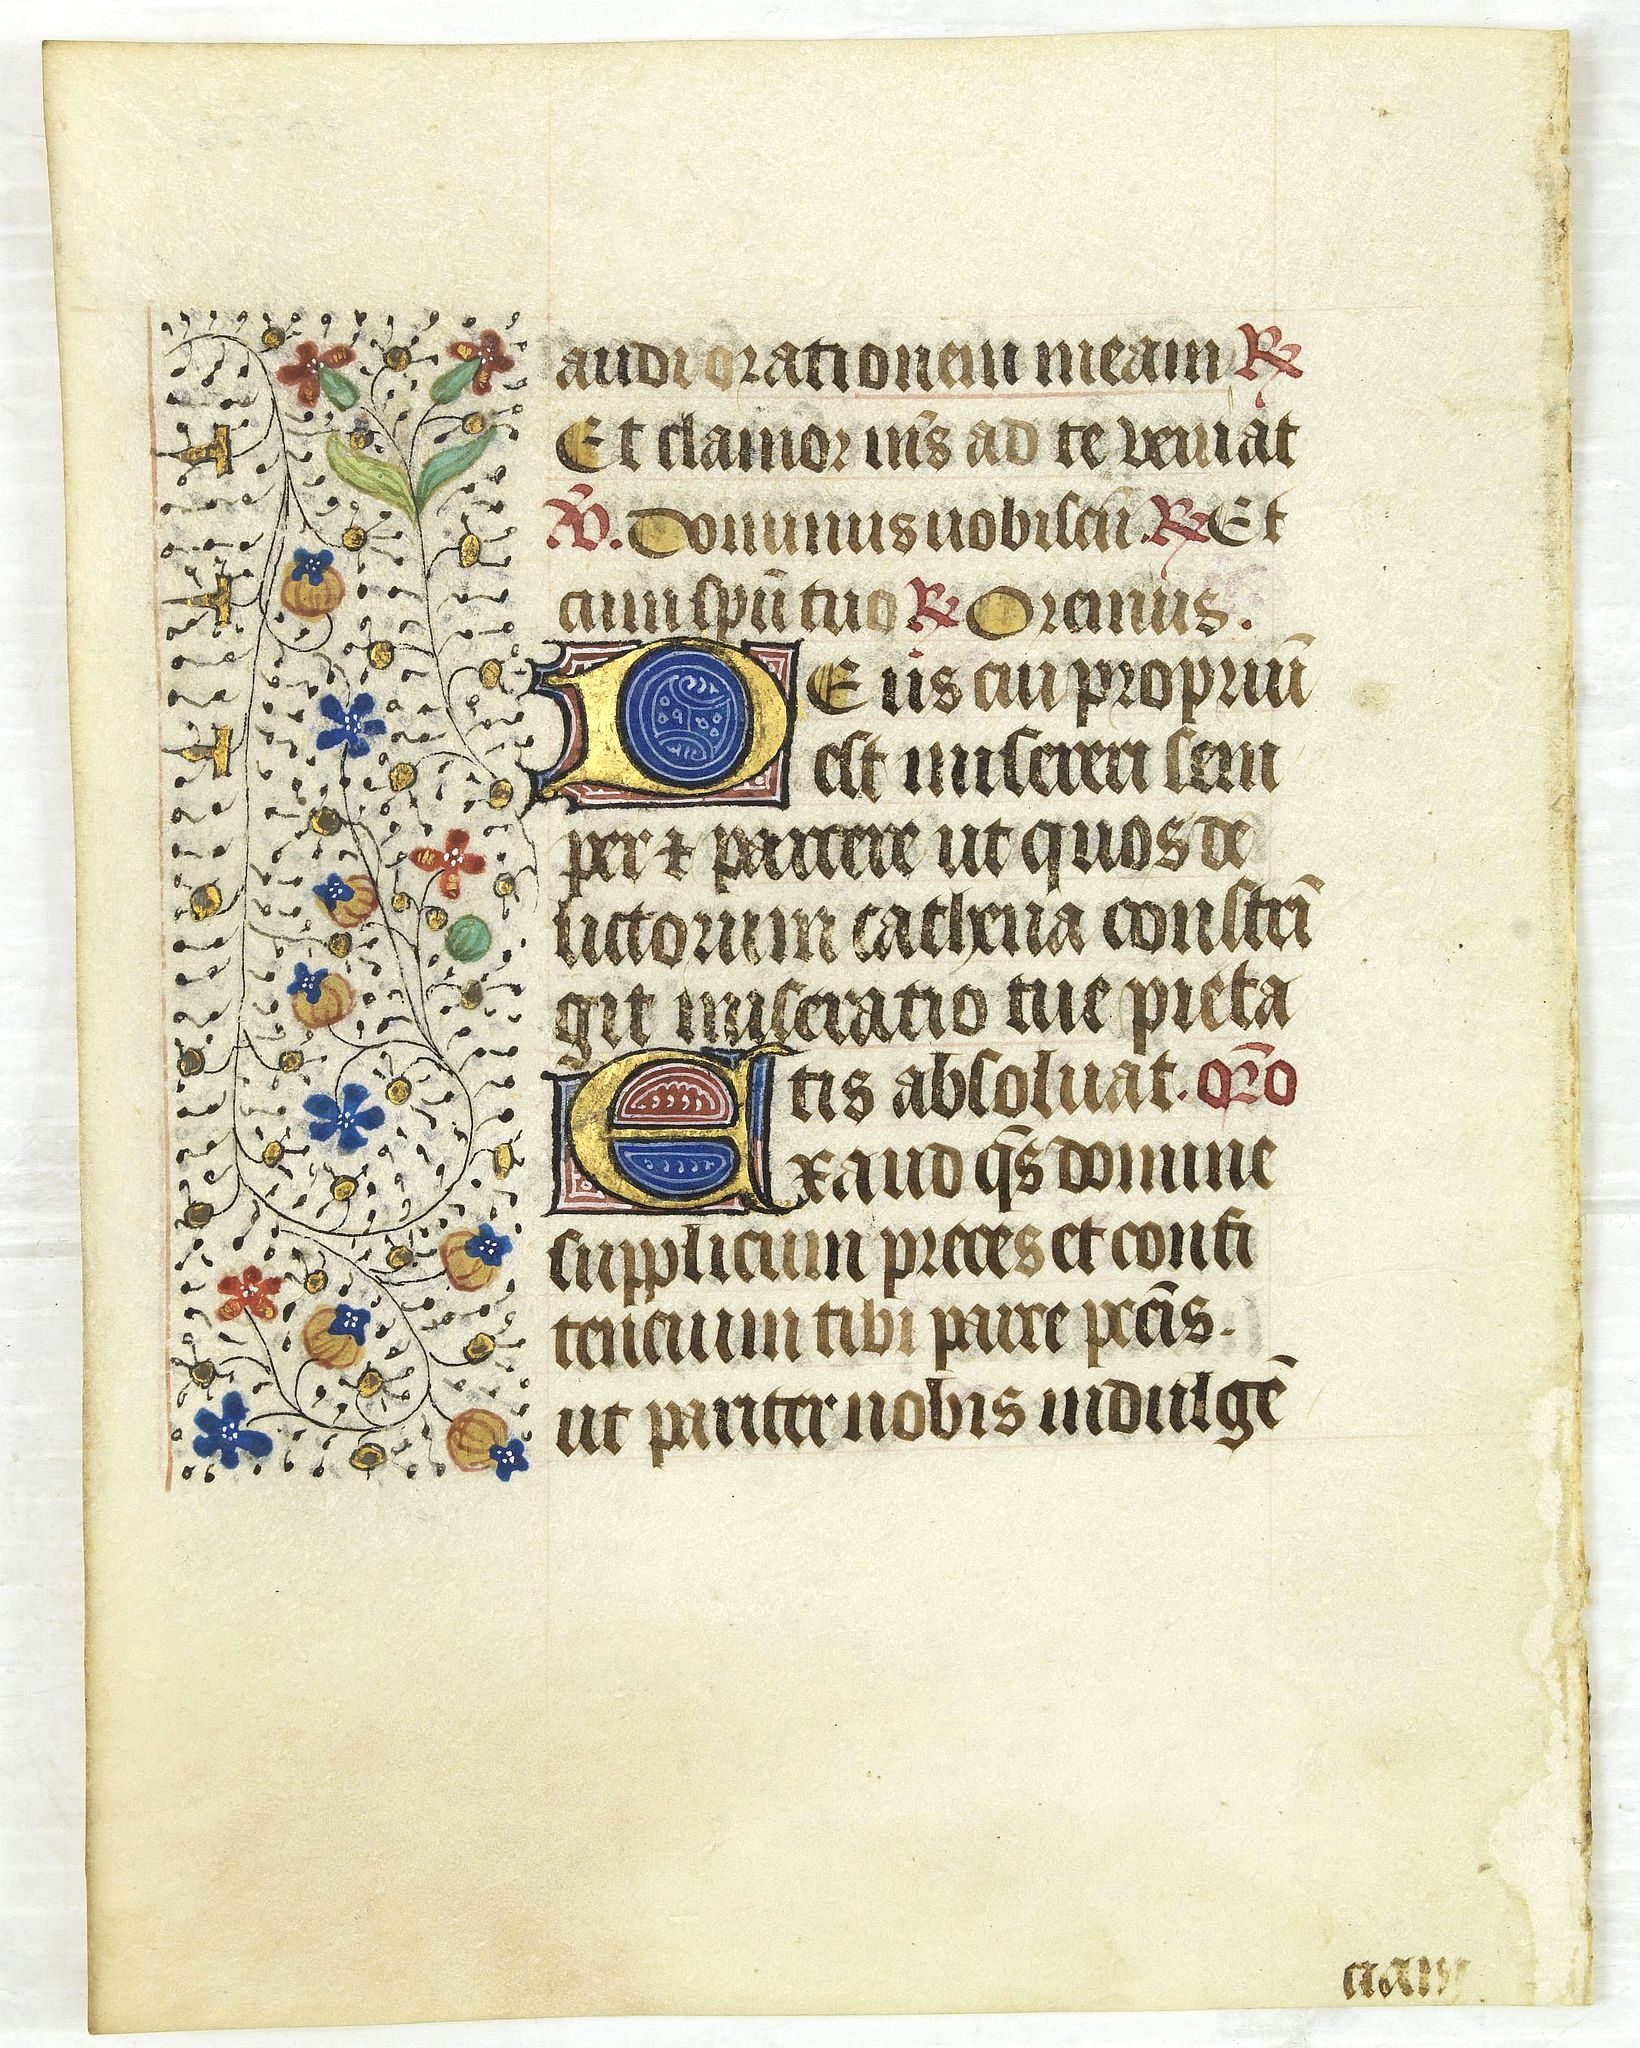 audi orationem meam ℟
Et clamor m̄s ad te veniat
℣. Dominus uobiscū. ℟ Et
cum sp̄u tuo ℟ Oremus.
DEus cui propriū
est misereri sem
per ⁊ parcere ut quos de
lictorum cathena constrī
git miseratio tue pieta
tis absoluat. or̄o
Exaud q̄s domine
supplicum preces et confi
tencium tibi parce pcc̄is.
ut pariter nobis indulgē
ciam